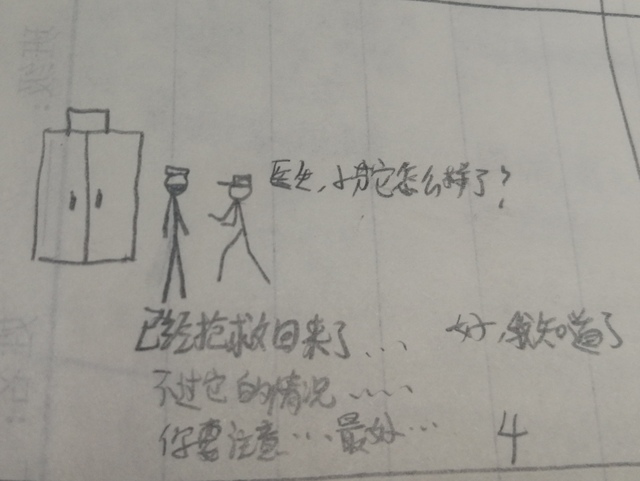 医生,小狗它怎么样了?
已经抢救回来了...
好,我知道了
不过它的情况.....
你要注意...最好...
4